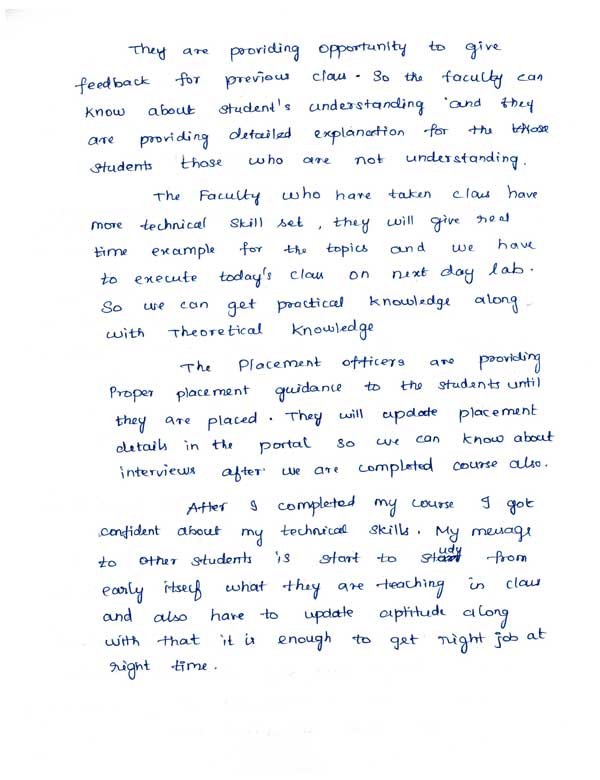 They are providing opportunity to give
feedback for previous class. So the faculty can
know about student's understanding and they
are providing detailed explanation for the those
students those who are not understanding.
The Faculty who have taken class have
more technical skill set, they will give real
time example for the topics and we have
to execute today's class on next day lab.
So we can get practical knowledge along
with Theoretical knowledge
The Placement officers are providing
Proper placement guidance to the students until
they are placed. They will update placement
details in the portal so we can know about
interviews after we are completed course also.
After I completed my course I got
confident about my technical skills. My message
to other students is start to study from
early itself what they are teaching in class
and also have to update aptitude along
with that it is enough to get right job at
right time.